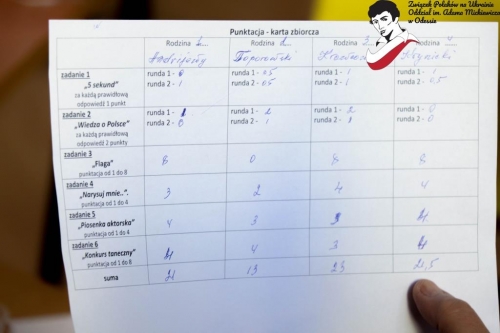 Związek Polaków na Ukrainie
Oddział im. Adama Mickiewicza
w Odessie
Punktacja - karta zbiorcza
Rodzina 1 Rodzina 2 Rodzina 3 Rodzina 4
zadanie 1
„5 sekund”
za każdą prawidłową
odpowiedź 1 punkt
runda 1 - 0 runda 1 - 05 runda 1 - 1 runda 1 - 1
runda 2 - 1 runda 2 - 05 runda 2 - 1 runda 2 - 0,5
zadanie 2
„Wiedza o Polsce”
za każdą prawidłową
odpowiedź 2 punkty
runda 1 - runda 1 - 2 runda 1 - 2 runda 1 - 0
runda 2 - 0 runda 2 - 1 runda 2 - runda 2 - 0
zadanie 3
„Flaga”
punktacja od 1 do 8
8 0 8 8
zadanie 4
„Narysuj mnie..”.
punktacja od 1 do 4
3 2 4 4
zadanie 5
„Piosenka aktorska”
punktacja od 1 do 4
4 3 3 4
zadanie 6
„Konkurs taneczny”
punktacja od 1 do 8
4 4 3 4
suma 21 13 23 21,5